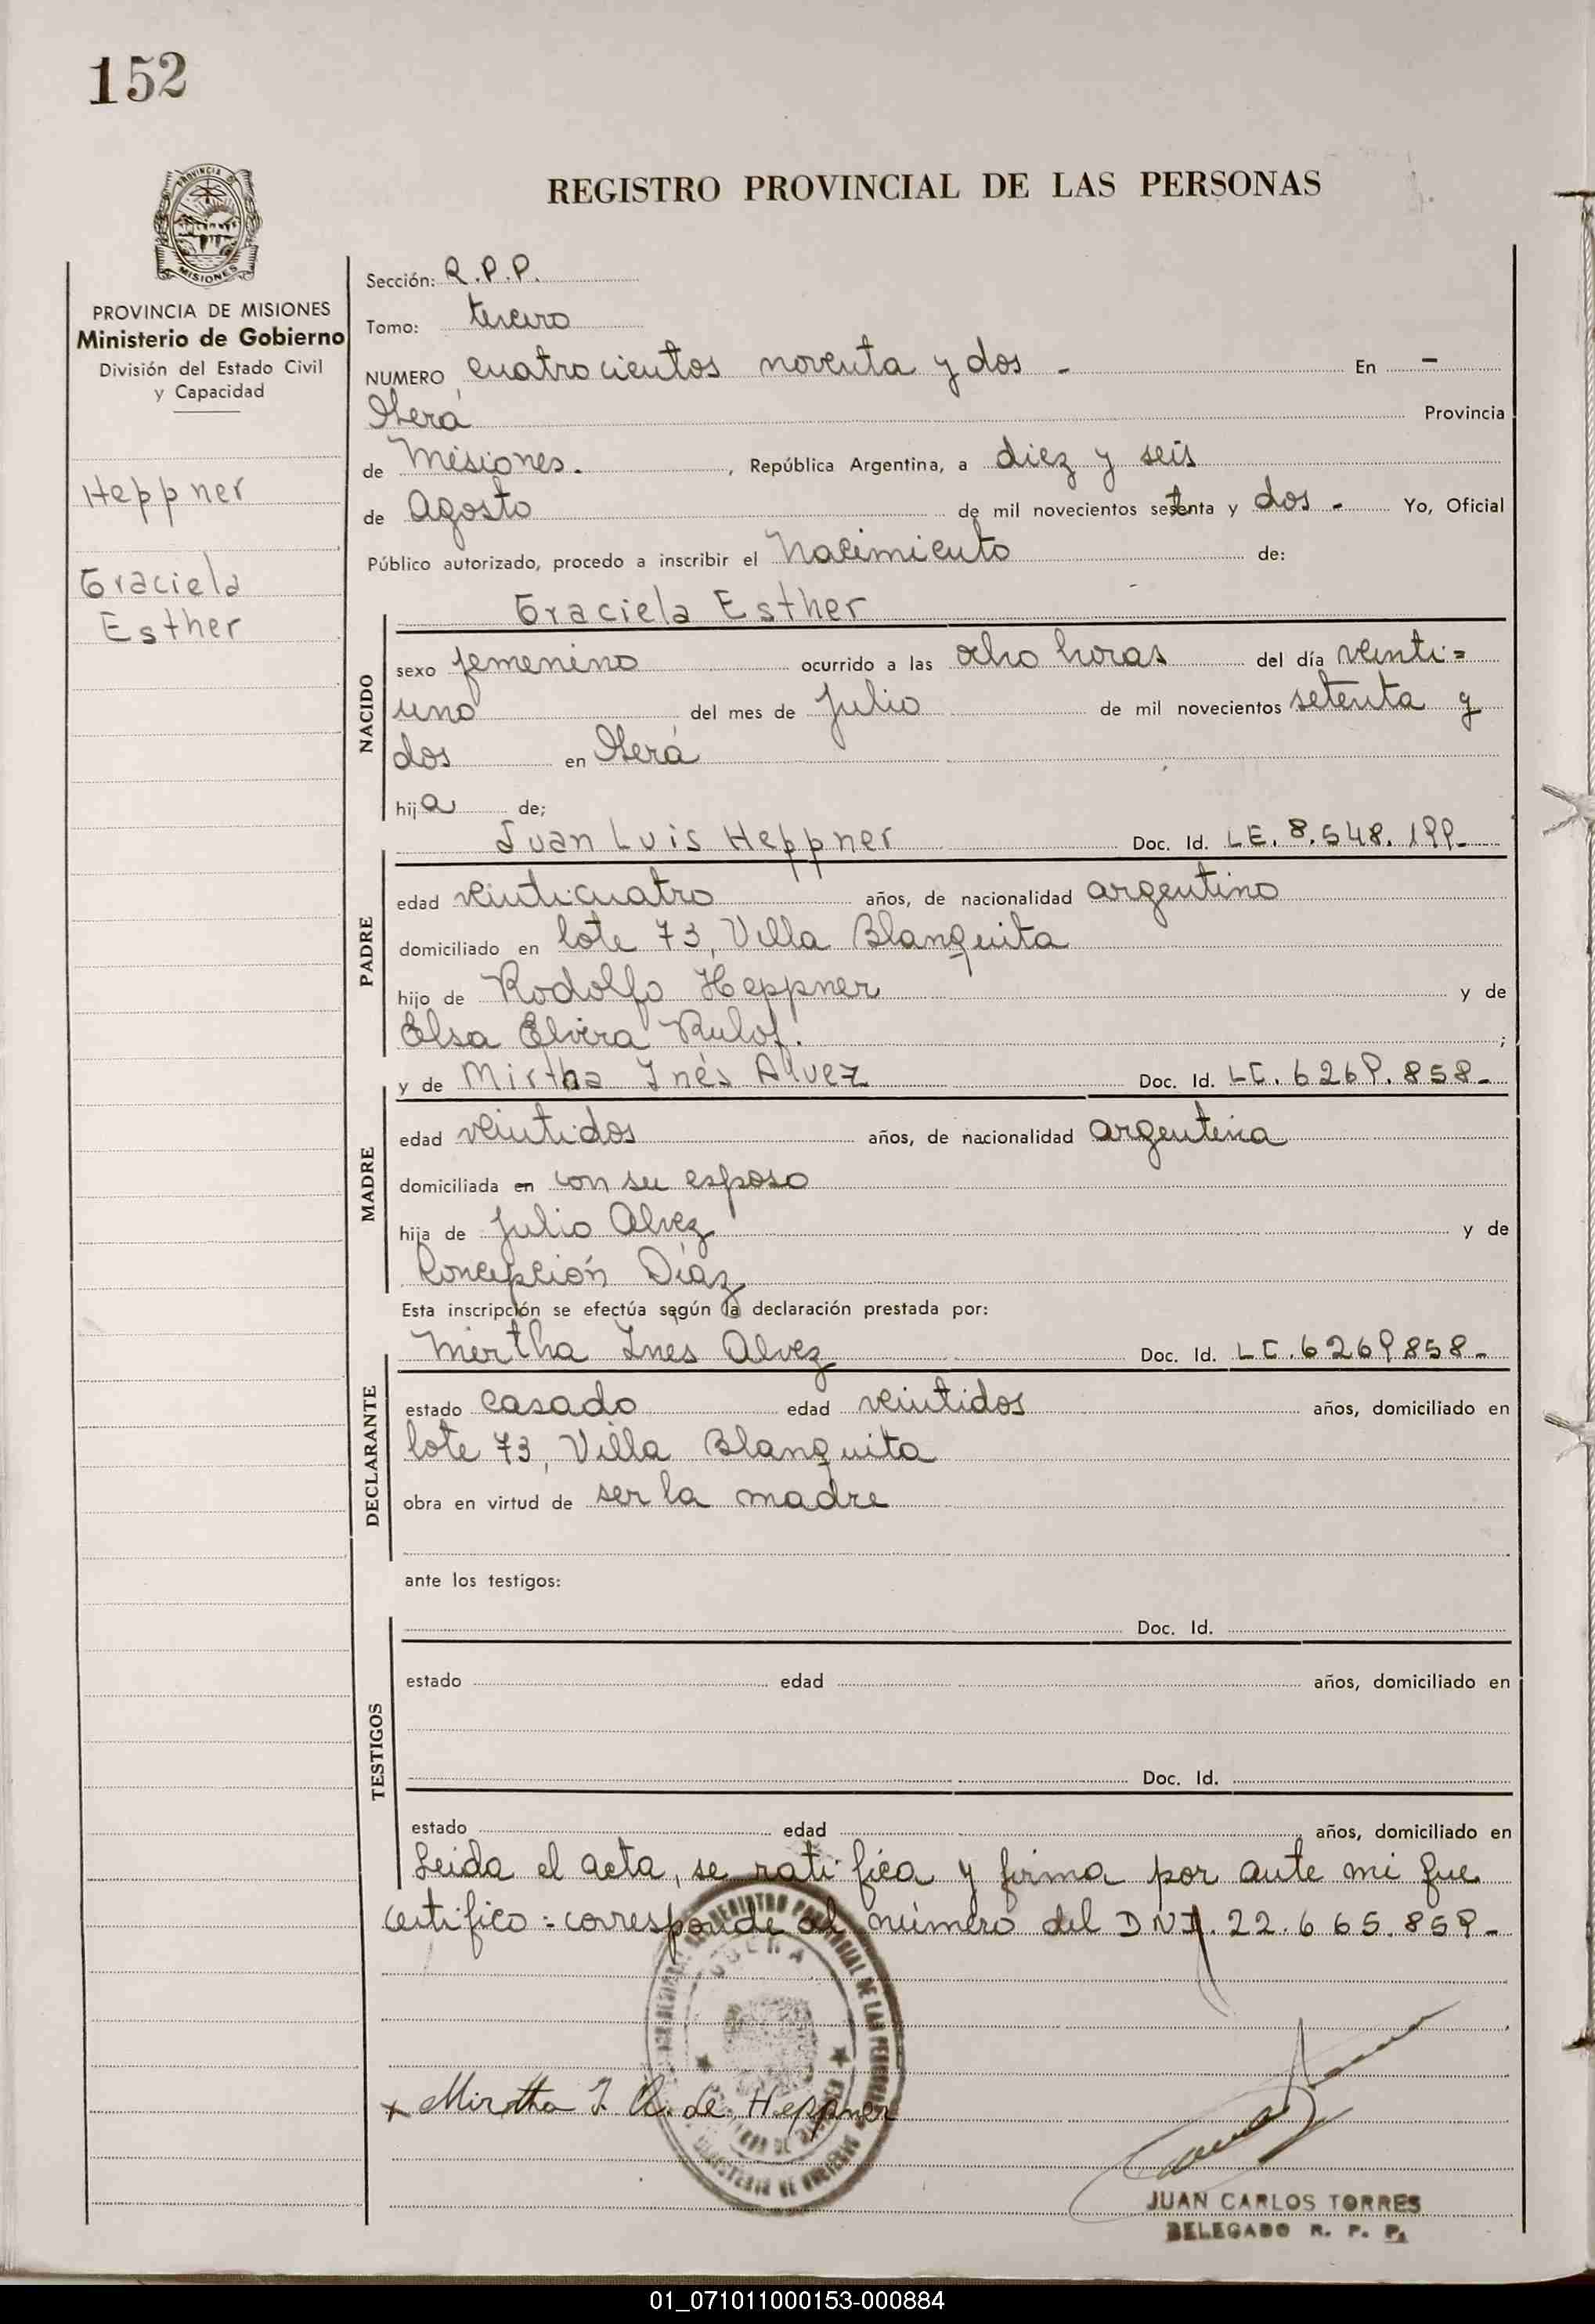 152
PROVINCIA DE MISIONES
REGISTRO PROVINCIAL DE LAS PERSONAS
PROVINCIA DE MISIONES
Ministerio de Gobierno
División del Estado Civil
y Capacidad
Heppner
Graciela
Esther
Sección: R.P.P.
Tomo: tercero
NUMERO cuatrocientos noventa y dos - En -
Oberá Provincia
de Misiones. , República Argentina, a diez y seis
de Agosto de mil novecientos setenta y dos - Yo, Oficial
Público autorizado, procedo a inscribir el Nacimiento de:
Graciela Esther
NACIDO
sexo femenino ocurrido a las ocho horas del día veinti=
uno del mes de Julio de mil novecientos setenta y
dos en Oberá
hija de;
Juan Luis Heppner Doc. Id. LE. 8.548.199-
PADRE
edad veinticuatro años, de nacionalidad argentino
domiciliado en lote 73, Villa Blanquita
hijo de Rodolfo Heppner y de
Elsa Elvira Rulof. ;
y de Mirtha Inés Alvez Doc. Id. LC. 6269.858-
MADRE
edad veintidos años, de nacionalidad argentina
domiciliada en con su esposo
hija de Julio Alvez y de
Concepción Díaz
Esta inscripción se efectúa según la declaración prestada por:
Mirtha Ines Alvez Doc. Id. LC. 6269858-
DECLARANTE
estado casado edad veintidos años, domiciliado en
lote 73, Villa Blanquita
obra en virtud de ser la madre
ante los testigos:
Doc. Id.
TESTIGOS
estado edad años, domiciliado en
Doc. Id.
estado edad años, domiciliado en
Leida el acta, se ratifica y firma por ante mi que
certifico = corresponde al número del DNI. 22.665.859-
REGISTRO PROVINCIAL DE LAS PERSONAS
OBERA
x Mirtha I. A. de Heppner
JUAN CARLOS TORRES
DELEGADO R. P. P.
01_071011000153-000884